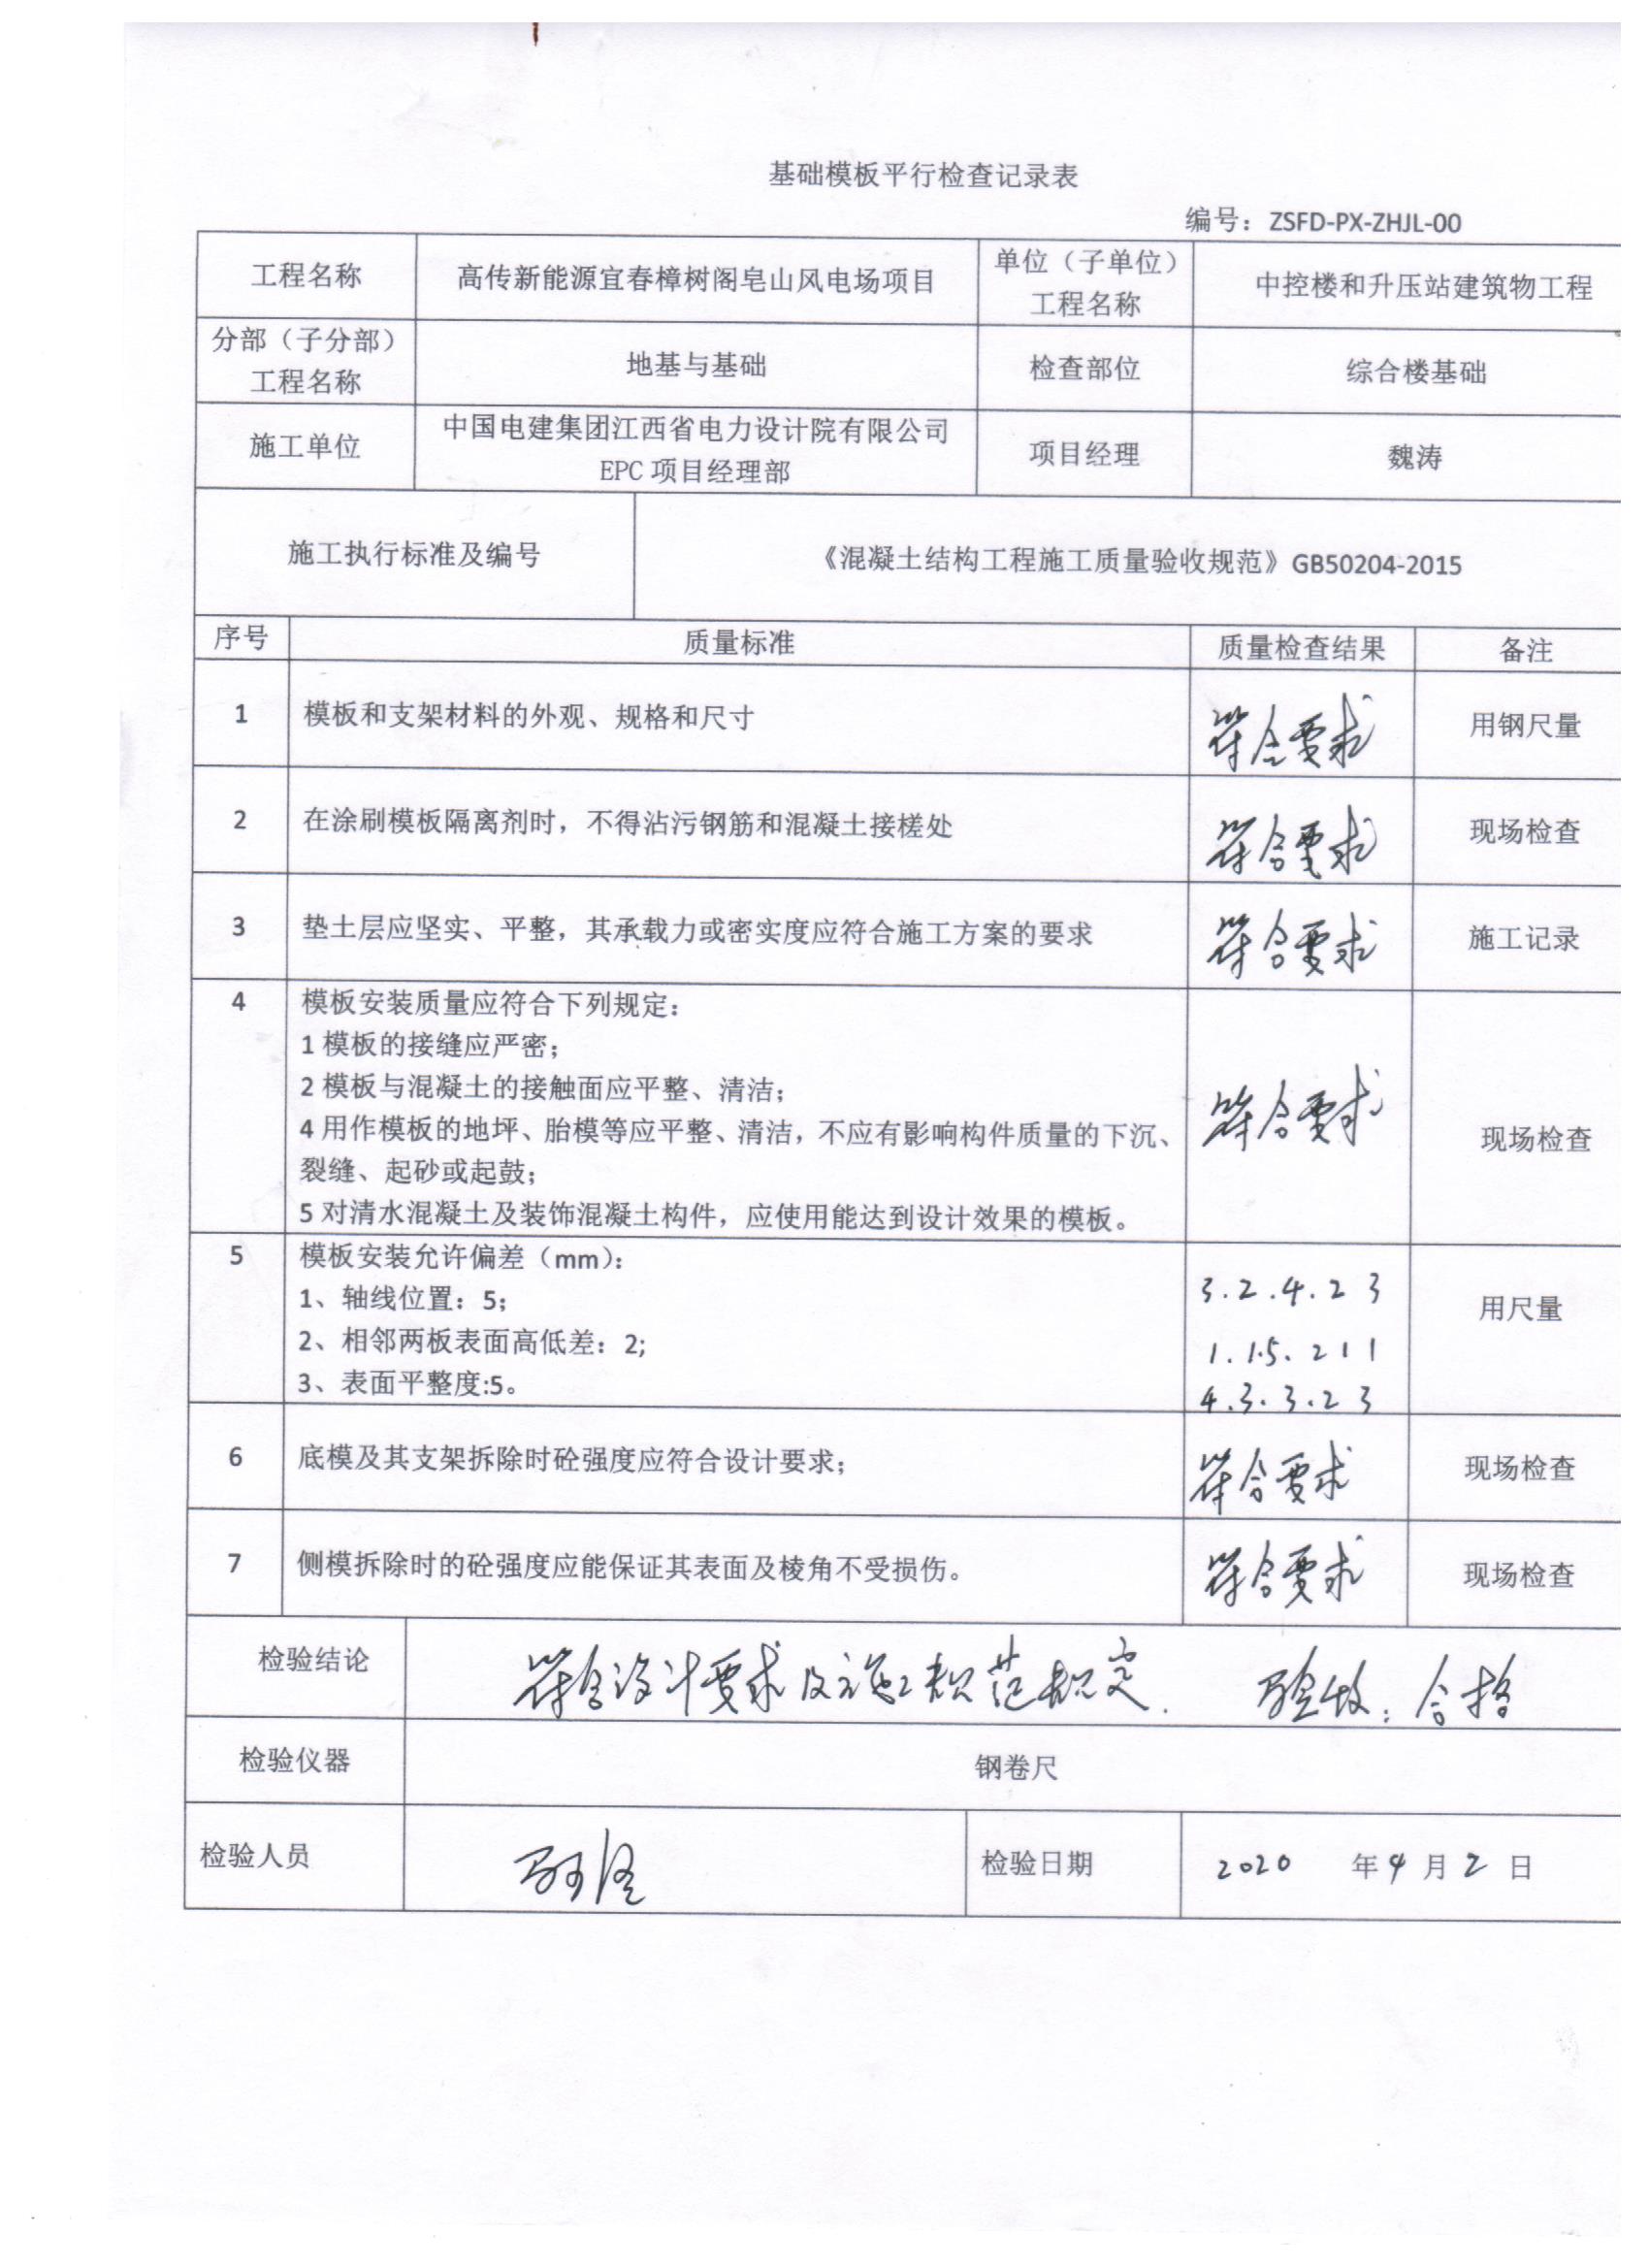 基础模板平行检查记录表
编号：ZSFD-PX-ZHJL-00
工程名称 高传新能源宜春樟树阁皂山风电场项目 单位（子单位）工程名称 中控楼和升压站建筑物工程
分部（子分部）工程名称 地基与基础 检查部位 综合楼基础
施工单位 中国电建集团江西省电力设计院有限公司EPC 项目经理部 项目经理 魏涛
施工执行标准及编号 《混凝土结构工程施工质量验收规范》GB50204-2015
序号 质量标准 质量检查结果 备注
1 模板和支架材料的外观、规格和尺寸 符合要求 用钢尺量
2 在涂刷模板隔离剂时，不得沾污钢筋和混凝土接槎处 符合要求 现场检查
3 垫土层应坚实、平整，其承载力或密实度应符合施工方案的要求 符合要求 施工记录
4 模板安装质量应符合下列规定：
1 模板的接缝应严密；
2 模板与混凝土的接触面应平整、清洁；
4 用作模板的地坪、胎模等应平整、清洁，不应有影响构件质量的下沉、
裂缝、起砂或起鼓；
5 对清水混凝土及装饰混凝土构件，应使用能达到设计效果的模板。
符合要求 现场检查
5 模板安装允许偏差（mm）：
1、轴线位置：5； 3.2.4.2 3
用尺量
2、相邻两板表面高低差：2; 1.1.5.2 1 1
3、表面平整度:5。 4.3.3.2 3
6 底模及其支架拆除时砼强度应符合设计要求； 符合要求 现场检查
7 侧模拆除时的砼强度应能保证其表面及棱角不受损伤。 符合要求 现场检查
检验结论 符合设计要求及施工规范规定. 验收：合格
检验仪器 钢卷尺
检验人员 检验日期 2020 年 4 月 2 日